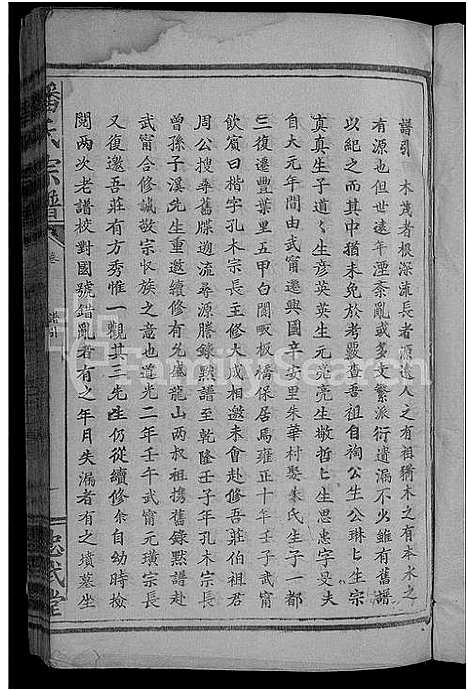 譜引 木茂者根深流長者源遠人之有祖猶木之有本水之
有源也但世遠年湮紊亂或多文繁派衍遺漏不火雖有舊譜
以紀之而其中猶未免於考覈查吾祖自祹公生公琳匕生宗
真真生子道匕生彦英英生元亮亮生敬哲匕生思惠字旻夫
自大元年間由武甯遷興國辛安里朱華村娶朱氏生子一都
三復遷豐葉里五甲白閬畈板橋保居焉雍正十年壬子武甯
飲賓曰楷字孔木宗長主修大成相邀未會赴修吾莊伯祖君
周公搜尋舊牒遡流尋源謄錄黙譜至乾隆壬子年孔木宗長
曾孫子漢先生重邀續修有允盛龍山两叔祖携舊錄黙譜赴
武甯合修誠敬宗收族之意也道光二年壬午武甯元璜宗長
又復邀吾莊有方秀惟一觀其三先生仍從續修余自幼時檢
閱两次老譜校對國號錯亂者有之年月失漏者有之墳墓坐
潘氏宗譜
卷
譜引
一
忠武堂
FamilySearch